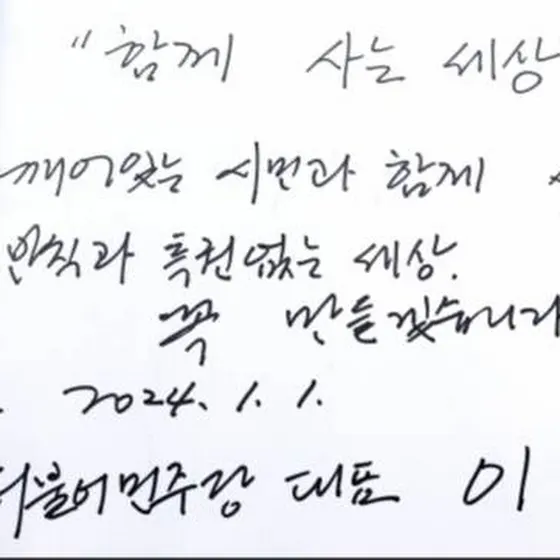 "함께 사는 세상
깨어있는 시민과 함께
반칙과 특권없는 세상.
꼭 만들겠습니다
2024. 1. 1.
더불어민주당 대표 이